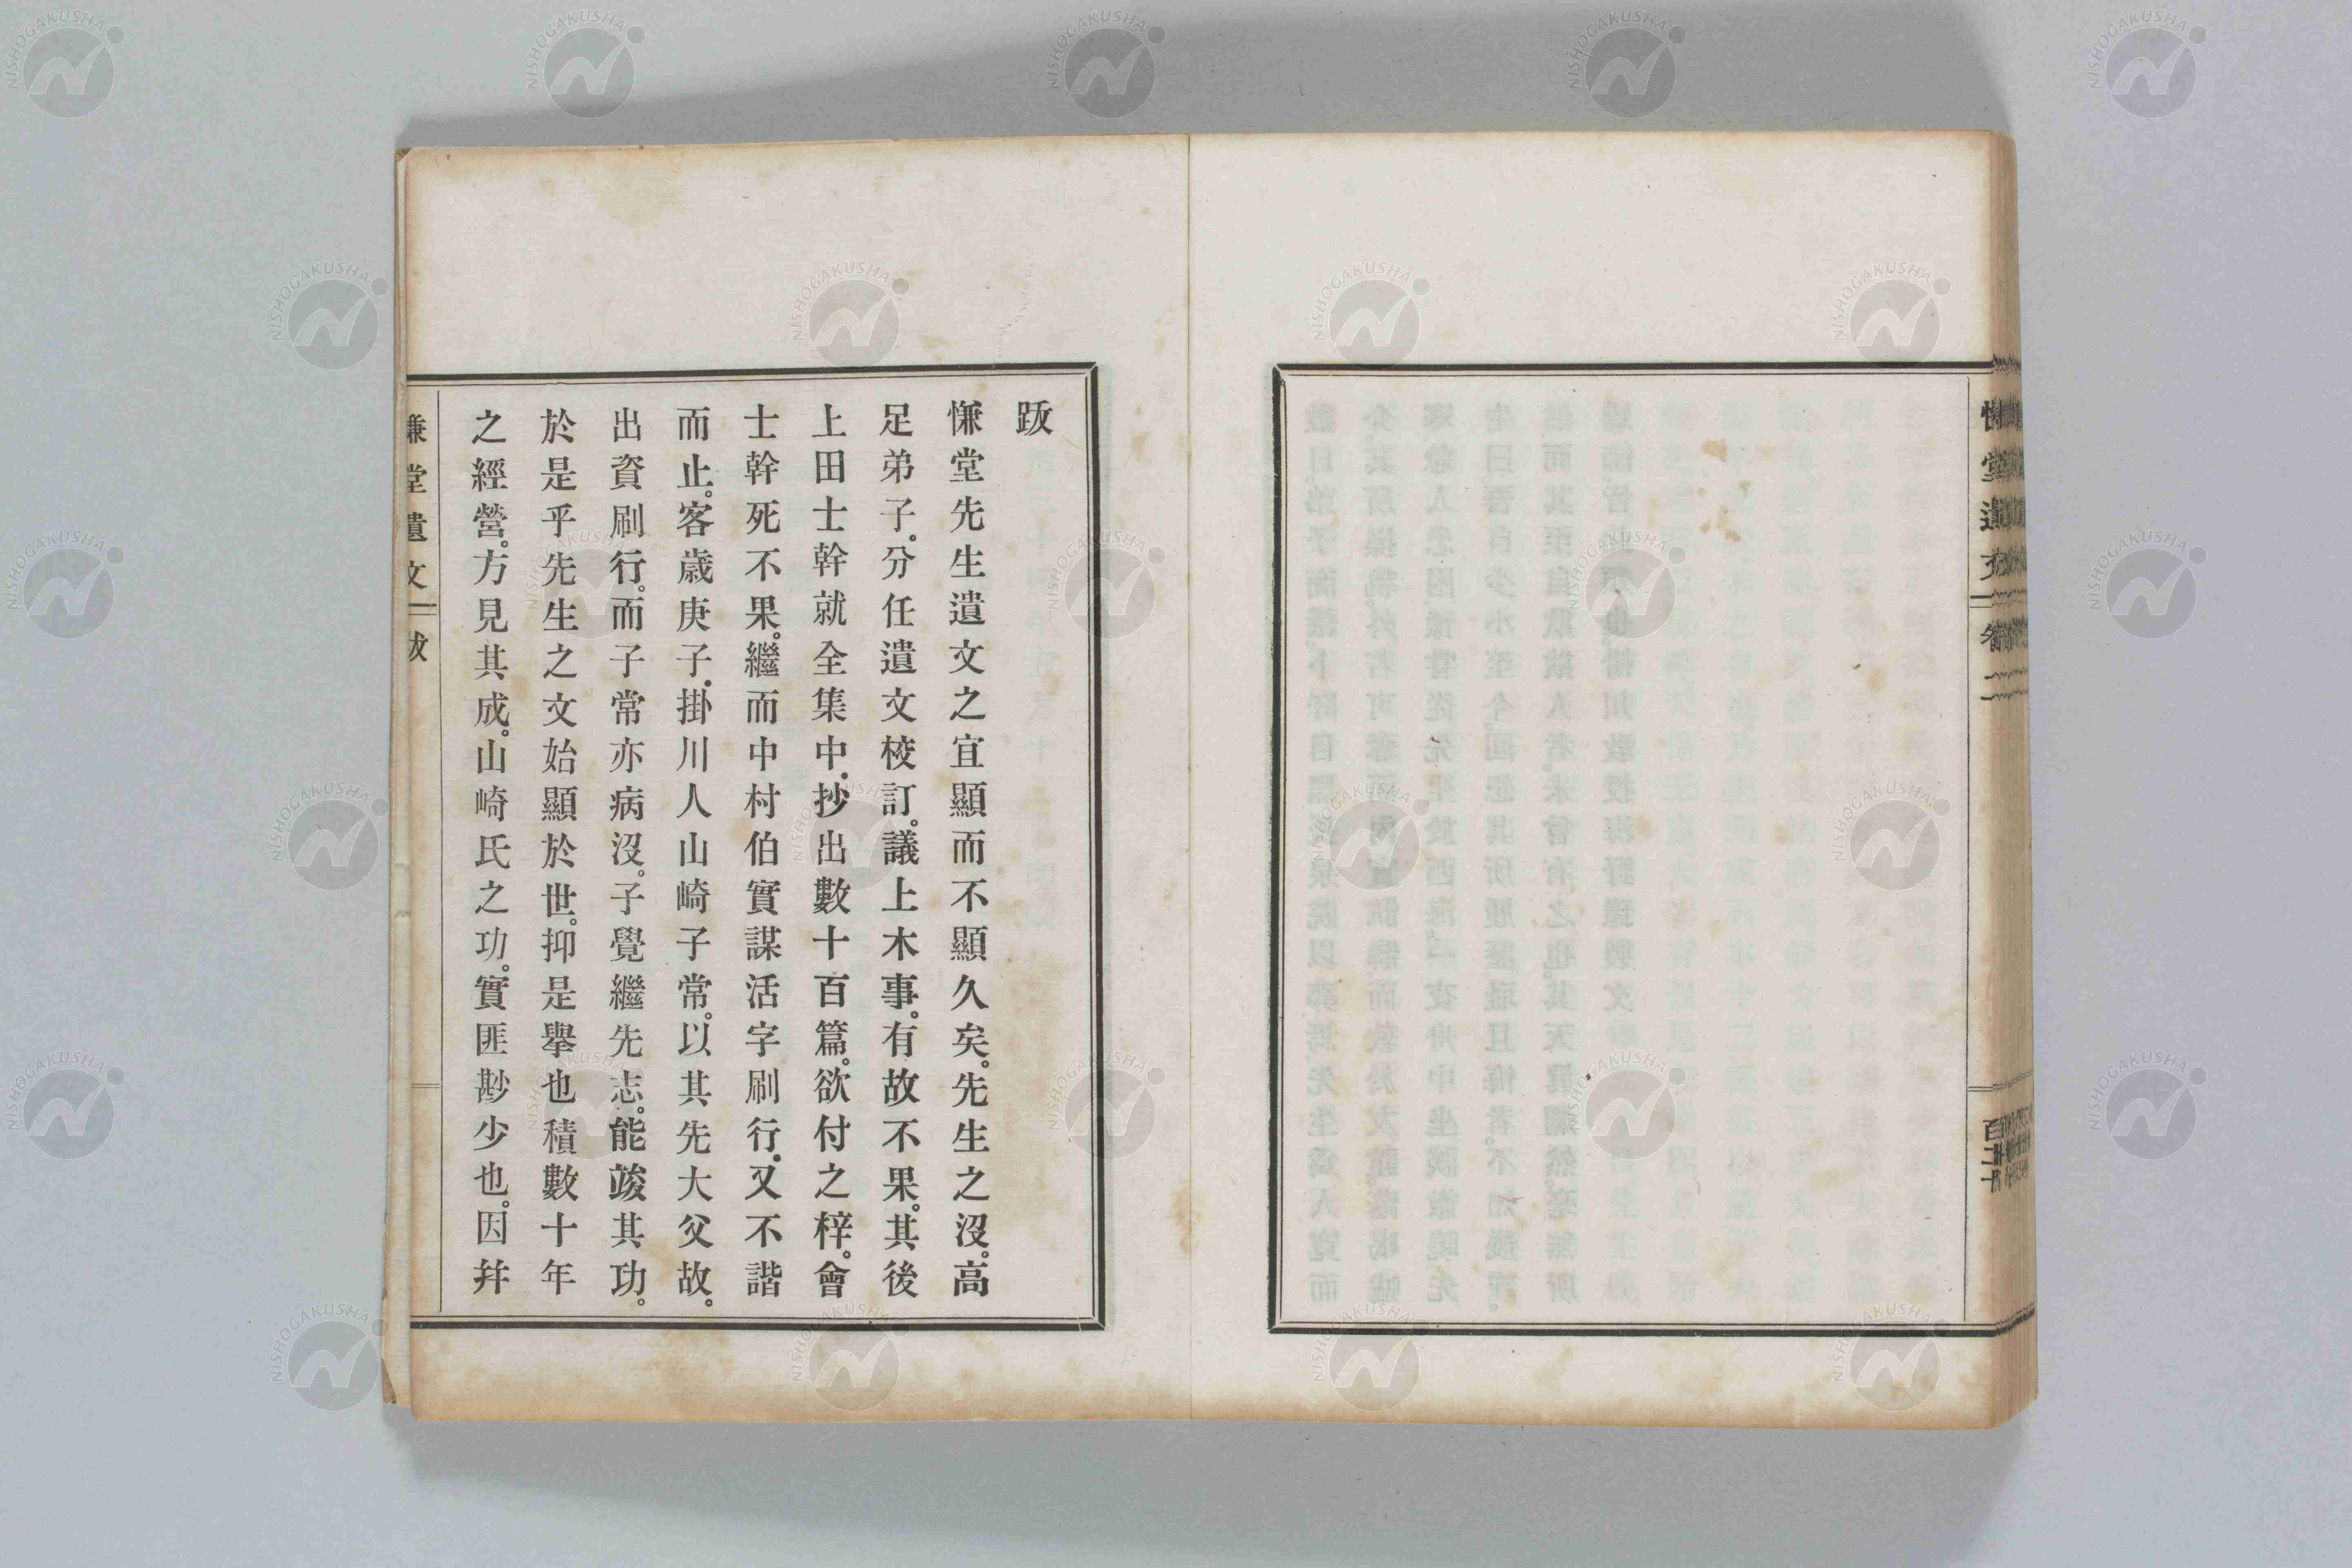 慊堂遺文
卷二
跋
慊堂先生遺文之宜顯而不顯久矣。先生之沒。高
足弟子。分任遺文校訂。議上木事。有故不果。其後
上田士幹就全集中。抄出數十百篇。欲付之梓。會
士幹死不果。繼而中村伯實謀活字刷行。又不諧
而止。客歲庚子。掛川人山崎子常。以其先大父故。
出資刷行。而子常亦病沒。子覺繼先志。能竣其功。
於是乎先生之文始顯於世。抑是擧也積數十年
之經營。方見其成。山崎氏之功。實匪尠少也。因幷
慊堂遺文
跋
NISHOGAKUSHA